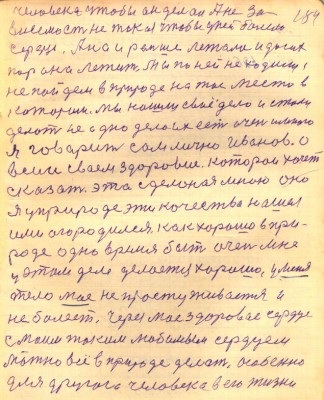 184
человека чтобы он делал. А не за-
висимость не такая чтобы у ней болело
сердце. Она и раньше летала и до сих
пор она летит. Мы по ней не ходили и
не пойдем в природе на то место в
котором. Мы нашли свое дело и стали
делать не одно дело их есть очень много
Я говорит сам лично Иванов. о
всем своем здоровие. Которой хочет
сказат. эта сделоная мною оно
Я у природе эти качества нашол
ими огородился. Как хорошо в при-
роде одно время быт очен мне
у этом деле делается хорошо, у меня
тело мое не простуживается и
не болеет. Через мое здоровае сердце
с моим таким любимым сердцем
можно всё в природе делат, особенно
для другого человека в его жизни